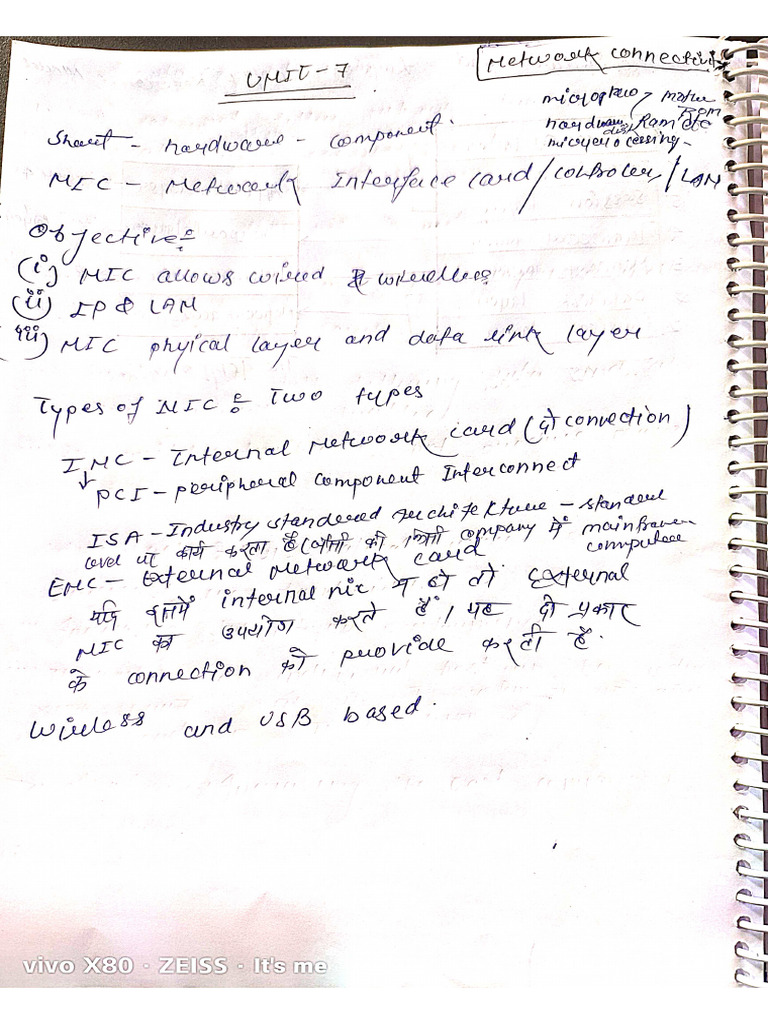 Network connectivi
UNIT-7
microproce mother
hardware disk, Ram Rom etc
microprocessing-
Short - hardware - component.
NIC - Network Interface card / controler / LAN
Objective:-
(i) NIC allows wired & wireless
(ii) IP & LAN
(iii) NIC phyical layer and data link layer
Types of NIC:- Two types
INC - Internal Network card (दो connection)
PCI - peripheral component Interconnect
ISA - Industry standered Architekture - standerd
level पर कार्य करता है company में mainframe
computer
ENC - External Network card
यदि इसमें internal nic न हो तो External
NIC का उपयोग करते हैं। यह दो प्रकार
के connection को provide करती है.
Wireless and USB based.
vivo X80 · ZEISS · It's me